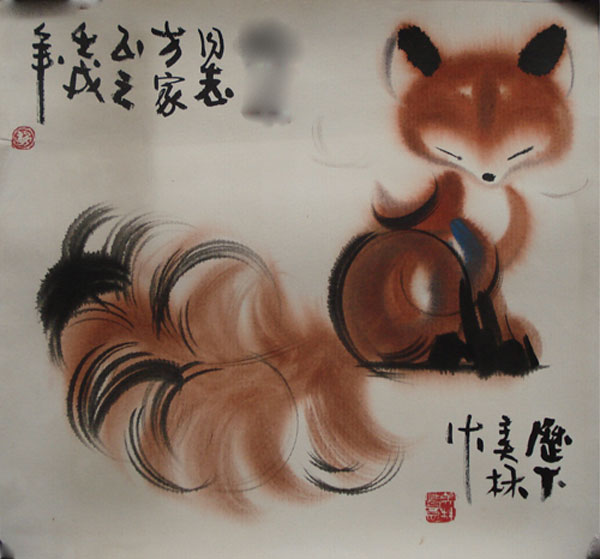 同志
方家
正之
壬戌
年
歷下
美林
作